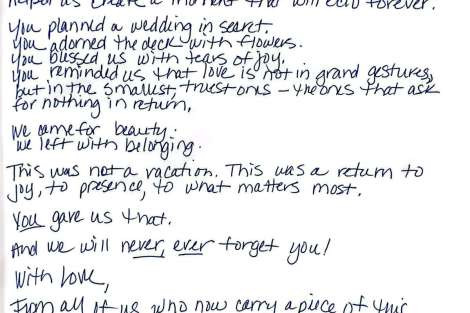 helped us create a moment that will echo forever.
You planned a wedding in secret.
You adorned the deck with flowers.
You bussed us with tears of joy.
You reminded us that love is not in grand gestures,
but in the smallest, truest ones – the ones that ask
for nothing in return.
We came for beauty.
We left with belonging.
This was not a vacation. This was a return to
joy, to presence, to what matters most.
You gave us that.
And we will never, ever forget you!
With Love,
From all of us who now carry a piece of this